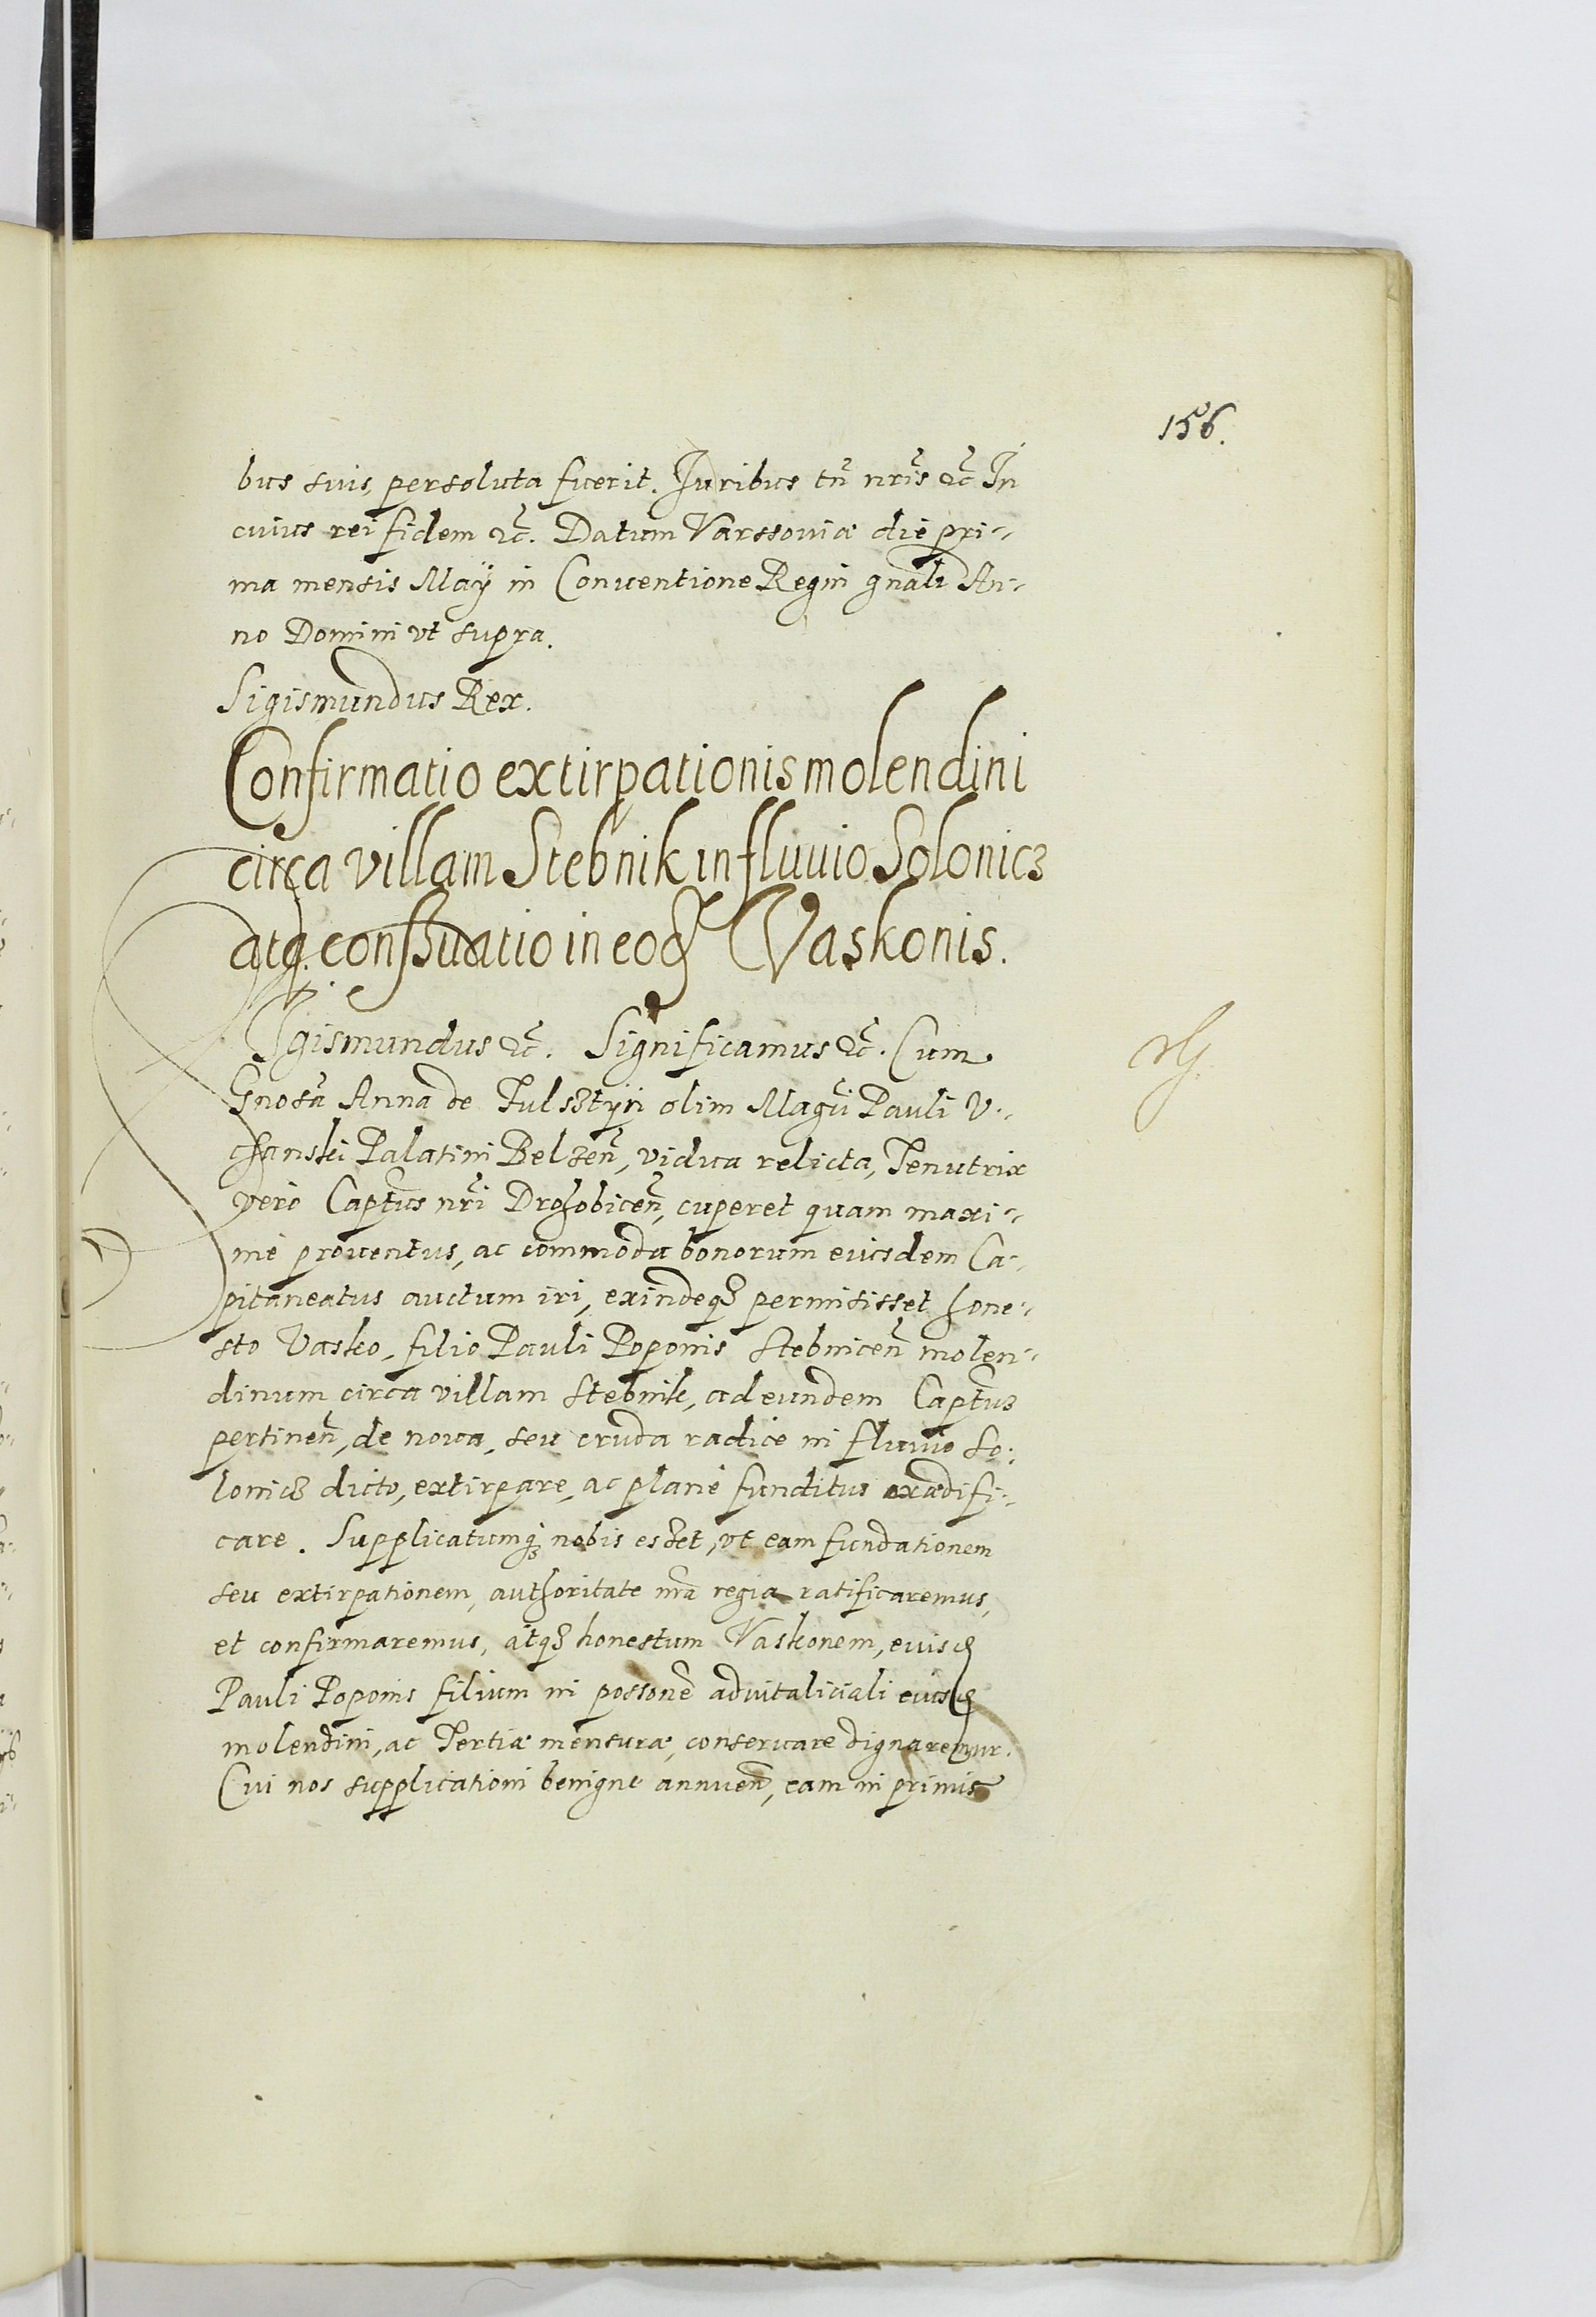 156.
bus suis, persoluta fuerit. Juribus tñ nrĩs &c̃ In
cuius rei fidem &c̃. Datum Varssouiæ die pri-
ma mensis Maÿ in Conuentione Regni gnãli An-
no Domini vt supra.
Sigismundus Rex.
Confirmatio extirpationis molendini
circa villam Stebnik in fluuio Solonicz
atq. conseruatio in eod Vaskonis.
Sigismundus &c̃. Significamus &c̃. Cum
Gnosã Anna de Fulsztÿn olim Magci Pauli V-
chanski Palatini Belzeñ, vidua relicta, Tenutrix
verò Captũs nrĩ Drohobiceñ, cuperet quam maxi-
mè prouentus, ac commoda bonorum eiusdem Ca-
pitaneatus auctum iri, exindeq permisisset hone-
sto Vasko, filio Pauli Poponis Stebniceñ molen-
dinum circa villam Stebnik, ad eundem Captũs
pertineñ, de noua, seu cruda radice in fluuio So-
lonicz dicto, extirpare, ac planè funditus exædifi-
care. Supplicatumq nobis esset, vt eam fundationem
seu extirpationem, authoritate nrã regia ratificaremus,
et confirmaremus, atq honestum Vaskonem, eiusd
Pauli Poponis filium in possone aduitaliciali eiusd
molendini, ac Tertiæ mensuræ, conseruare dignaremur.
Cui nos supplicationi benigne annueñ, eam in primis